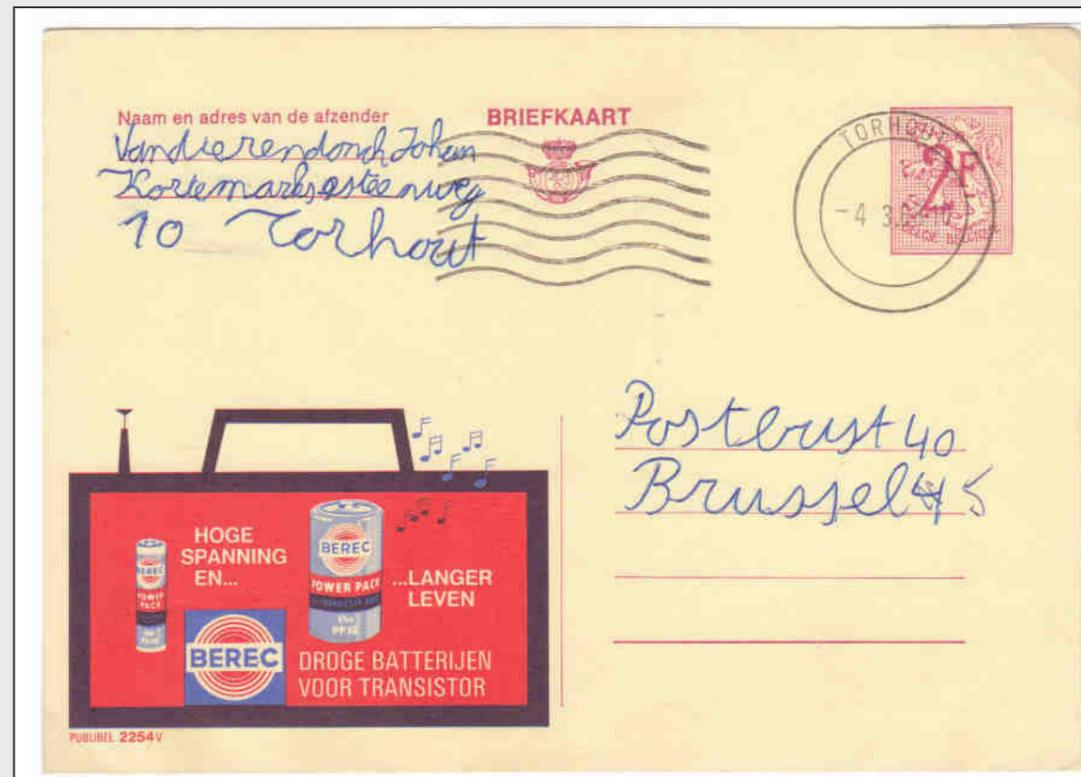 Naam en adres van de afzender
BRIEFKAART
Vandierendonck Johan
Kortemarksesteenweg
10 Torhout
TORHOUT
-4 3
2F
BELGIE BELGIQUE
Postbust 40
Brussel 45
HOGE
SPANNING
EN...
BEREC
POWER
PACK
BEREC
POWER PACK
...LANGER
LEVEN
BEREC
DROGE BATTERIJEN
VOOR TRANSISTOR
PUBLIBEL 2254V